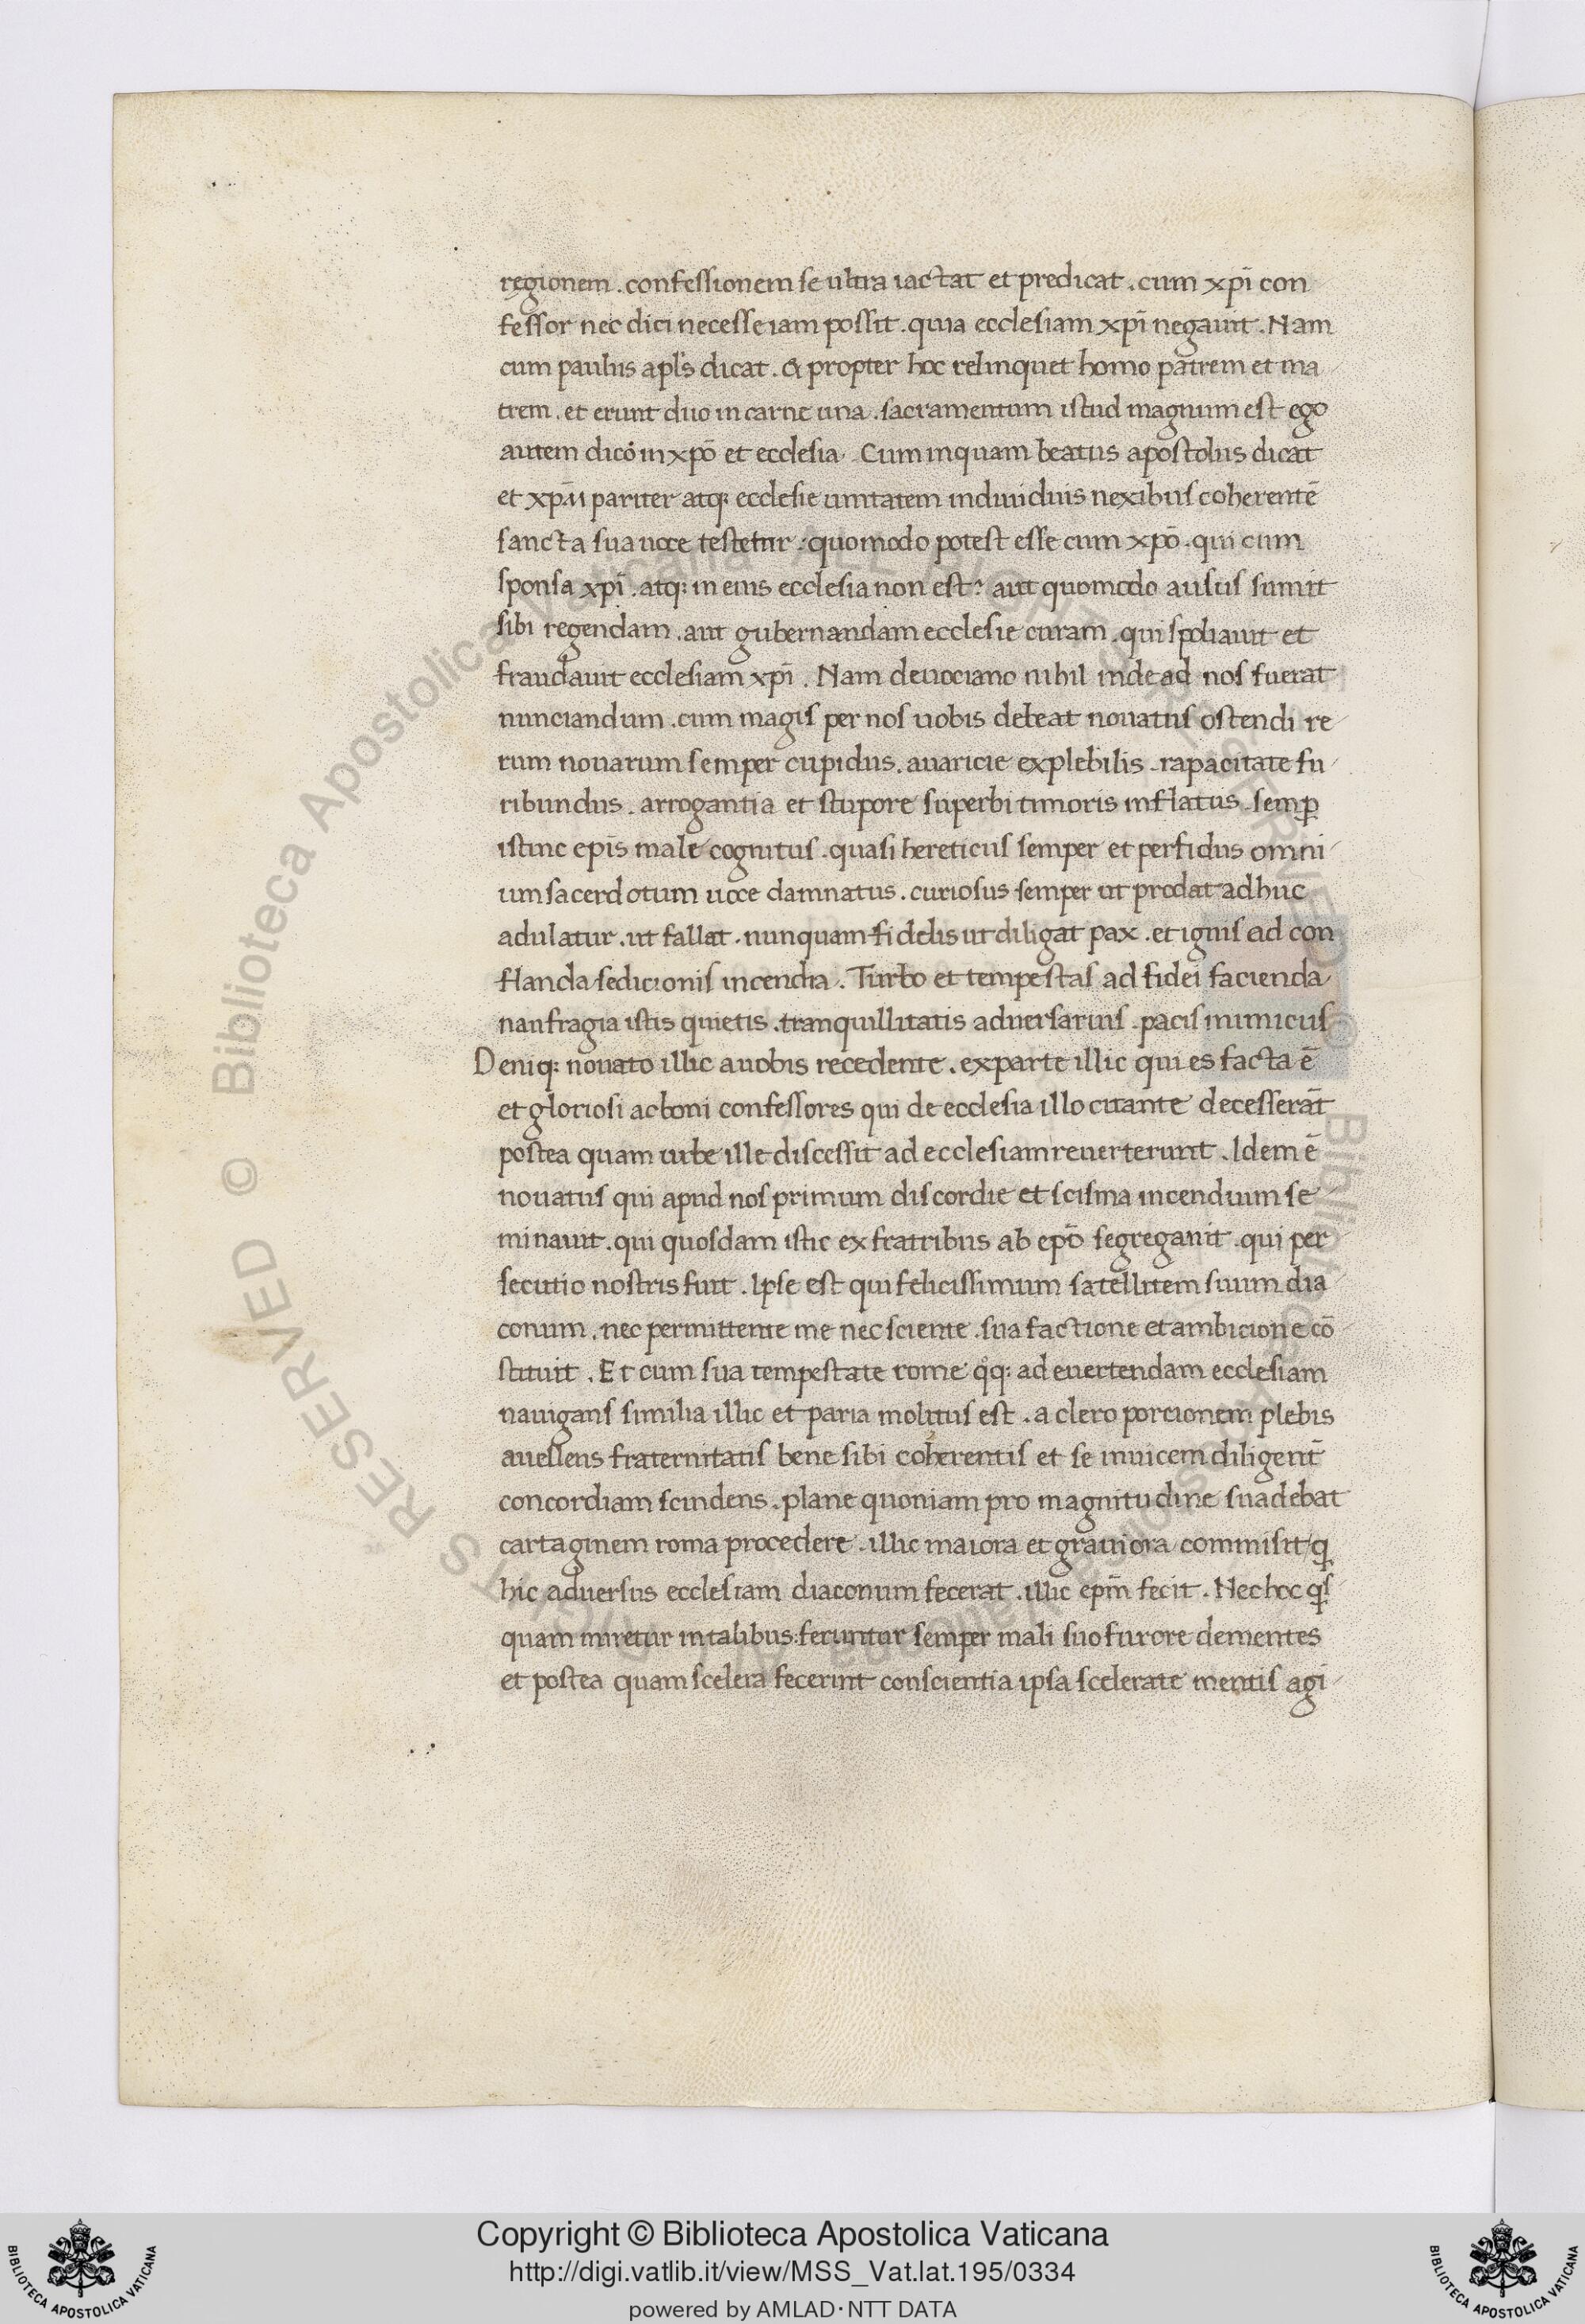 regionem . confessionem se ultra iactat et predicat . cum xp̄i con
fessor nec dici necesse iam possit . quia ecclesiam xp̄i negauit . Nam
cum paulus apl's dicat . & propter hoc relinquet homo patrem et ma
trem . et erunt duo in carne una . sacramentum istud magnum est ego
autem dico in xpō et ecclesia . Cum inquam beatus apostolus dicat
et xp̄u pariter atq: ecclesie unitatem indiuiduis nexibus coherentē
sancta sua uoce testetur : quomodo potest esse cum xpō . qui cum
sponsa xp̄i . atq: in eius ecclesia non est ? aut quomodo ausus sumit
sibi regendam . aut gubernandam ecclesie curam . qui spoliauit et
fraudauit ecclesiam xp̄i . Nam deuociano nihil inde ad nos fuerat
nunciandum . cum magis per nos uobis debeat nouatus ostendi re
rum nouarum semper cupidus . auaricie explebilis . rapacitate fu
ribundus . arrogantia et stupore superbi tumoris inflatus . semꝑ
istinc ep̄is male cognitus . quasi hereticus semper et perfidus omni
um sacerdotum uoce damnatus . curiosus semper ut prodat adhuc
adulatur . ut fallat . nunquam fidelis ut diligat pax . et ignis ad con
flanda sedicionis incendia . Turbo et tempestas ad fidei facienda
naufragia istis quietis . tranquillitatis aduersarius . pacis inimicus
Deniq: nouato illic a uobis recedente . ex parte illic qui es facta ē
et gloriosi ac boni confessores qui de ecclesia illo citante decesserāt
postea quam iurbe ille discessit ad ecclesiam reuerterunt . Idem ē
nouatus qui apud nos primum discordie et scisma incendium se
minauit . qui quosdam istic ex fratribus ab epō segregauit . qui per
secutio nostris fuit . Ipse est qui felicissimum satellitem suum dia
conum . nec permittente me nec sciente . sua factione et ambicione cō
stituit . Et cum sua tempestate rome qͦq: ad euertendam ecclesiam
nauigans similia illic et paria molitus est . a clero porcionem plebis
auellens fraternitatis bene sibi coherentis et se inuicem diligent̄
concordiam scindens . plane quoniam pro magnitudine sua debat
cartaginem roma procedere . illic maiora et grauiora commisit q
hic aduersus ecclesiam diaconum fecerat . illic epm̄ fecit . Nec hoc qͥs
quam miretur in talibus : feruntur semper mali suo furore dementes
et postea quam scelera fecerint conscientia ipsa scelerate mentis agi
Copyright © Biblioteca Apostolica Vaticana
http://digi.vatlib.it/view/MSS_Vat.lat.195/0334
powered by AMLAD·NTT DATA
© Biblioteca Apostolica Vaticana ALL RIGHTS RESERVED
© Biblioteca Apostolica Vaticana ALL RIGHTS RESERVED
BIBLIOTECA APOSTOLICA VATICANA
BIBLIOTECA APOSTOLICA VATICANA